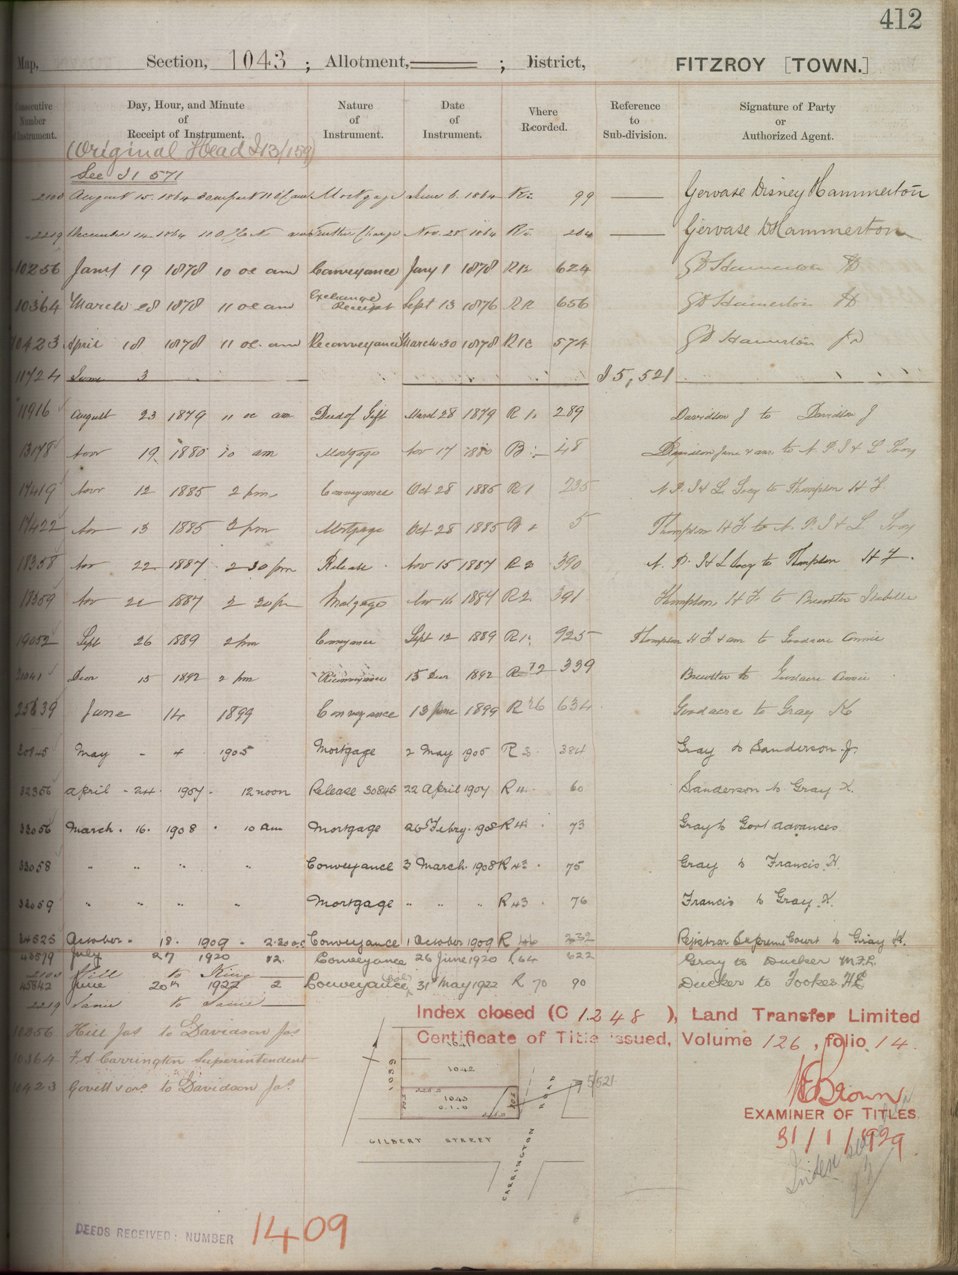 412
Map, Section, 1043 ; Allotment, ; District, FITZROY [TOWN.]
Consecutive Number of Instrument. Day, Hour, and Minute of Receipt of Instrument. Nature of Instrument. Date of Instrument. Where Recorded. Reference to Sub-division. Signature of Party or Authorized Agent.
(Original Head I 3/159)
See I1 571
2100 August 15. 1864 11 Mortgage June 6. 1864 R 99 Gervase Disney Hammerton
2219 December 14 1864 11 Further Charge Nov. 28 1864 R 214 Gervase D Hammerton
10256 Jany 19 1878 10 oc am Conveyance Jany 1 1878 R12 624 GD Hamerton
10364 March 28 1878 11 oc am Exchange Receipt Sept 13 1876 R12 656 GD Hamerton
10423 April 18 1878 11 oc am Reconveyance March 30 1878 R12 574 GD Hamerton
11724 June 3 I 5, 521
11916 August 23 1879 11 oc am Deed of Gift March 28 1879 R 289 Davidson J to Davidson J
13178 Nov 19 1880 10 am Mortgage Nov 17 1880 48
17419 Nov 12 1885 2 pm Conveyance Oct 28 1885 R 235 N. P. I & L Socy to Thompson H F
17422 Nov 13 1885 2 pm Mortgage Oct 28 1885 R 5 Thompson H F to N. P. I & L Socy
18358 Nov 22 1887 2 30 pm Release Nov 15 1887 R2 390 N. P. I & L Socy to Thompson H F.
18359 Nov 22 1887 2 30 pm Mortgage Nov 16 1887 R2 391 Thompson H F to Brewster Isabella
19052 Sept 26 1889 2 pm Conveyance Sept 12 1889 R 925 Thompson H F & anr to Goodacre Annie
15 1892 2 pm 1892 R 12 339 Brewster to Goodacre Annie
25639 June 14 1899 Conveyance 13 June 1899 R 26 634 Goodacre to Gray K
May - 4 1905 Mortgage 2 May 1905 R 384 Gray to Sanderson J.
32366 April - 24. 1907. 12 noon Release 30845 22 April 1907 R 60 Sanderson to Gray K.
33056 March. 16. 1908 . 10 am Mortgage 26 Febry. 1908 R 73 Gray to Govt advances
33058 " " " " Conveyance 3 March. 1908 R 43 . 75 Gray to Francis. H.
33059 " " " " Mortgage " " " R 43 . 76 Francis to Gray. K.
34525 October - 18. 1909 - 2. Conveyance 1 October 1909 R 46 232 Registrar Supreme Court to Gray H.
45879 July 27 1920 12. Conveyance 26 June 1920 R 64 622 Gray to Ducker M.F.R.
2100 Hill to King
June 20th 1922 2 Conveyance 31st May 1922 R 70 90 Ducker to Tooker H.E
2219 Same to Same
10256 Hill Jas to Davidson Jas
10364 F A Carrington Superintendent
10423 Govett & ors to Davidson Jas
Index closed (C 1248 ), Land Transfer Limited
Certificate of Title issued, Volume 126, folio 14.
H E Brown
EXAMINER OF TITLES.
31/1/1929.
1041
1042
1039
1043
0.1.0
5/521
GILBERT STREET
CARRINGTON ROAD
DEEDS RECEIVED: NUMBER 1409